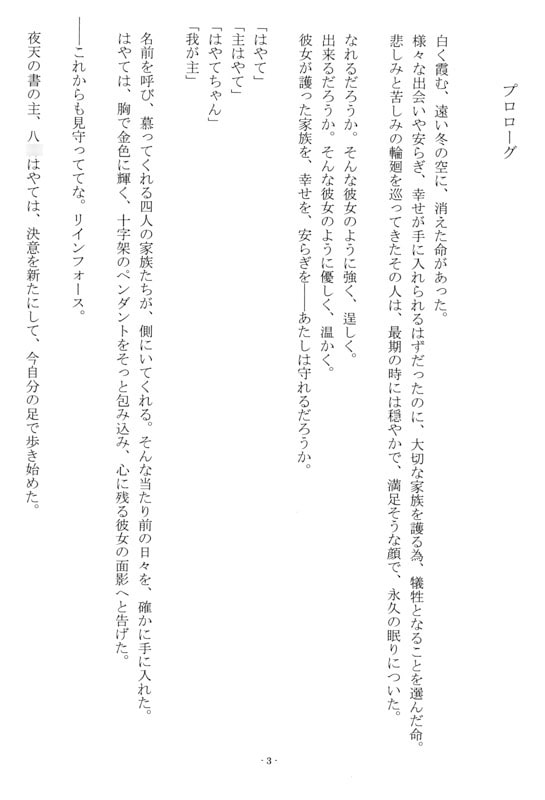 プロローグ
白く霞む、遠い冬の空に、消えた命があった。
様々な出会いや安らぎ、幸せが手に入れられるはずだったのに、大切な家族を護る為、犠牲となることを選んだ命。
悲しみと苦しみの輪廻を巡ってきたその人は、最期の時には穏やかで、満足そうな顔で、永久の眠りについた。
なれるだろうか。そんな彼女のように強く、逞しく。
出来るだろうか。そんな彼女のように優しく、温かく。
彼女が護った家族を、幸せを、安らぎを――あたしは守れるだろうか。
「はやて」
「主はやて」
「はやてちゃん」
「我が主」
名前を呼び、慕ってくれる四人の家族たちが、側にいてくれる。そんな当たり前の日々を、確かに手に入れた。
はやては、胸で金色に輝く、十字架のペンダントをそっと包み込み、心に残る彼女の面影へと告げた。
――これからも見守っててな。リインフォース。
夜天の書の主、八 はやては、決意を新たにして、今自分の足で歩き始めた。
- 3 -